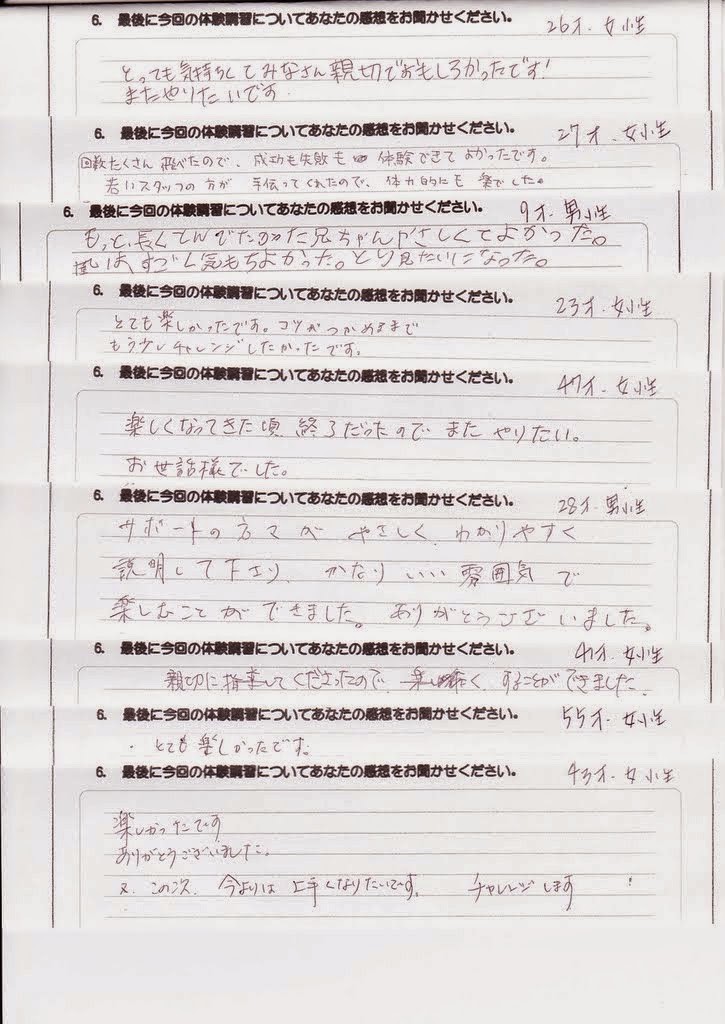 6. 最後に今回の体験講習についてあなたの感想をお聞かせください。 26才.女性
とっても気持ちくてみなさん親切でおもしろかったです!
またやりたいです.
6. 最後に今回の体験講習についてあなたの感想をお聞かせください。 27才.女性
回数たくさん飛べたので、成功も失敗も体験できてよかったです。
若いスタッフの方が手伝ってくれたので、体力的にも楽でした。
6. 最後に今回の体験講習についてあなたの感想をお聞かせください。 9才.男性
もっと、長くてんでたかった兄ちゃんやさしくてよかった。
風はすごく気もちよかった。とり見たいになった。
6. 最後に今回の体験講習についてあなたの感想をお聞かせください。 23才.女性
とても楽しかったです。コツがつかめるまで
もう少しチャレンジしたかったです。
6. 最後に今回の体験講習についてあなたの感想をお聞かせください。 47才.女性
楽しくなってきた頃終了だったのでまたやりたい。
お世話様でした。
6. 最後に今回の体験講習についてあなたの感想をお聞かせください。 28才.男性
サポートの方々がやさしくわかりやすく
説明して下さり、かなりいい雰囲気で
楽しむことができました。ありがとうございました。
6. 最後に今回の体験講習についてあなたの感想をお聞かせください。 41才.女性
親切に指導してくださったので、楽しくすることができました.
6. 最後に今回の体験講習についてあなたの感想をお聞かせください。 55才.女性
・とても楽しかったです。
6. 最後に今回の体験講習についてあなたの感想をお聞かせください。 43才.女性
楽しかったです
ありがとうございました。
又、この次、今よりは上手くなりたいです。 チャレンジします!